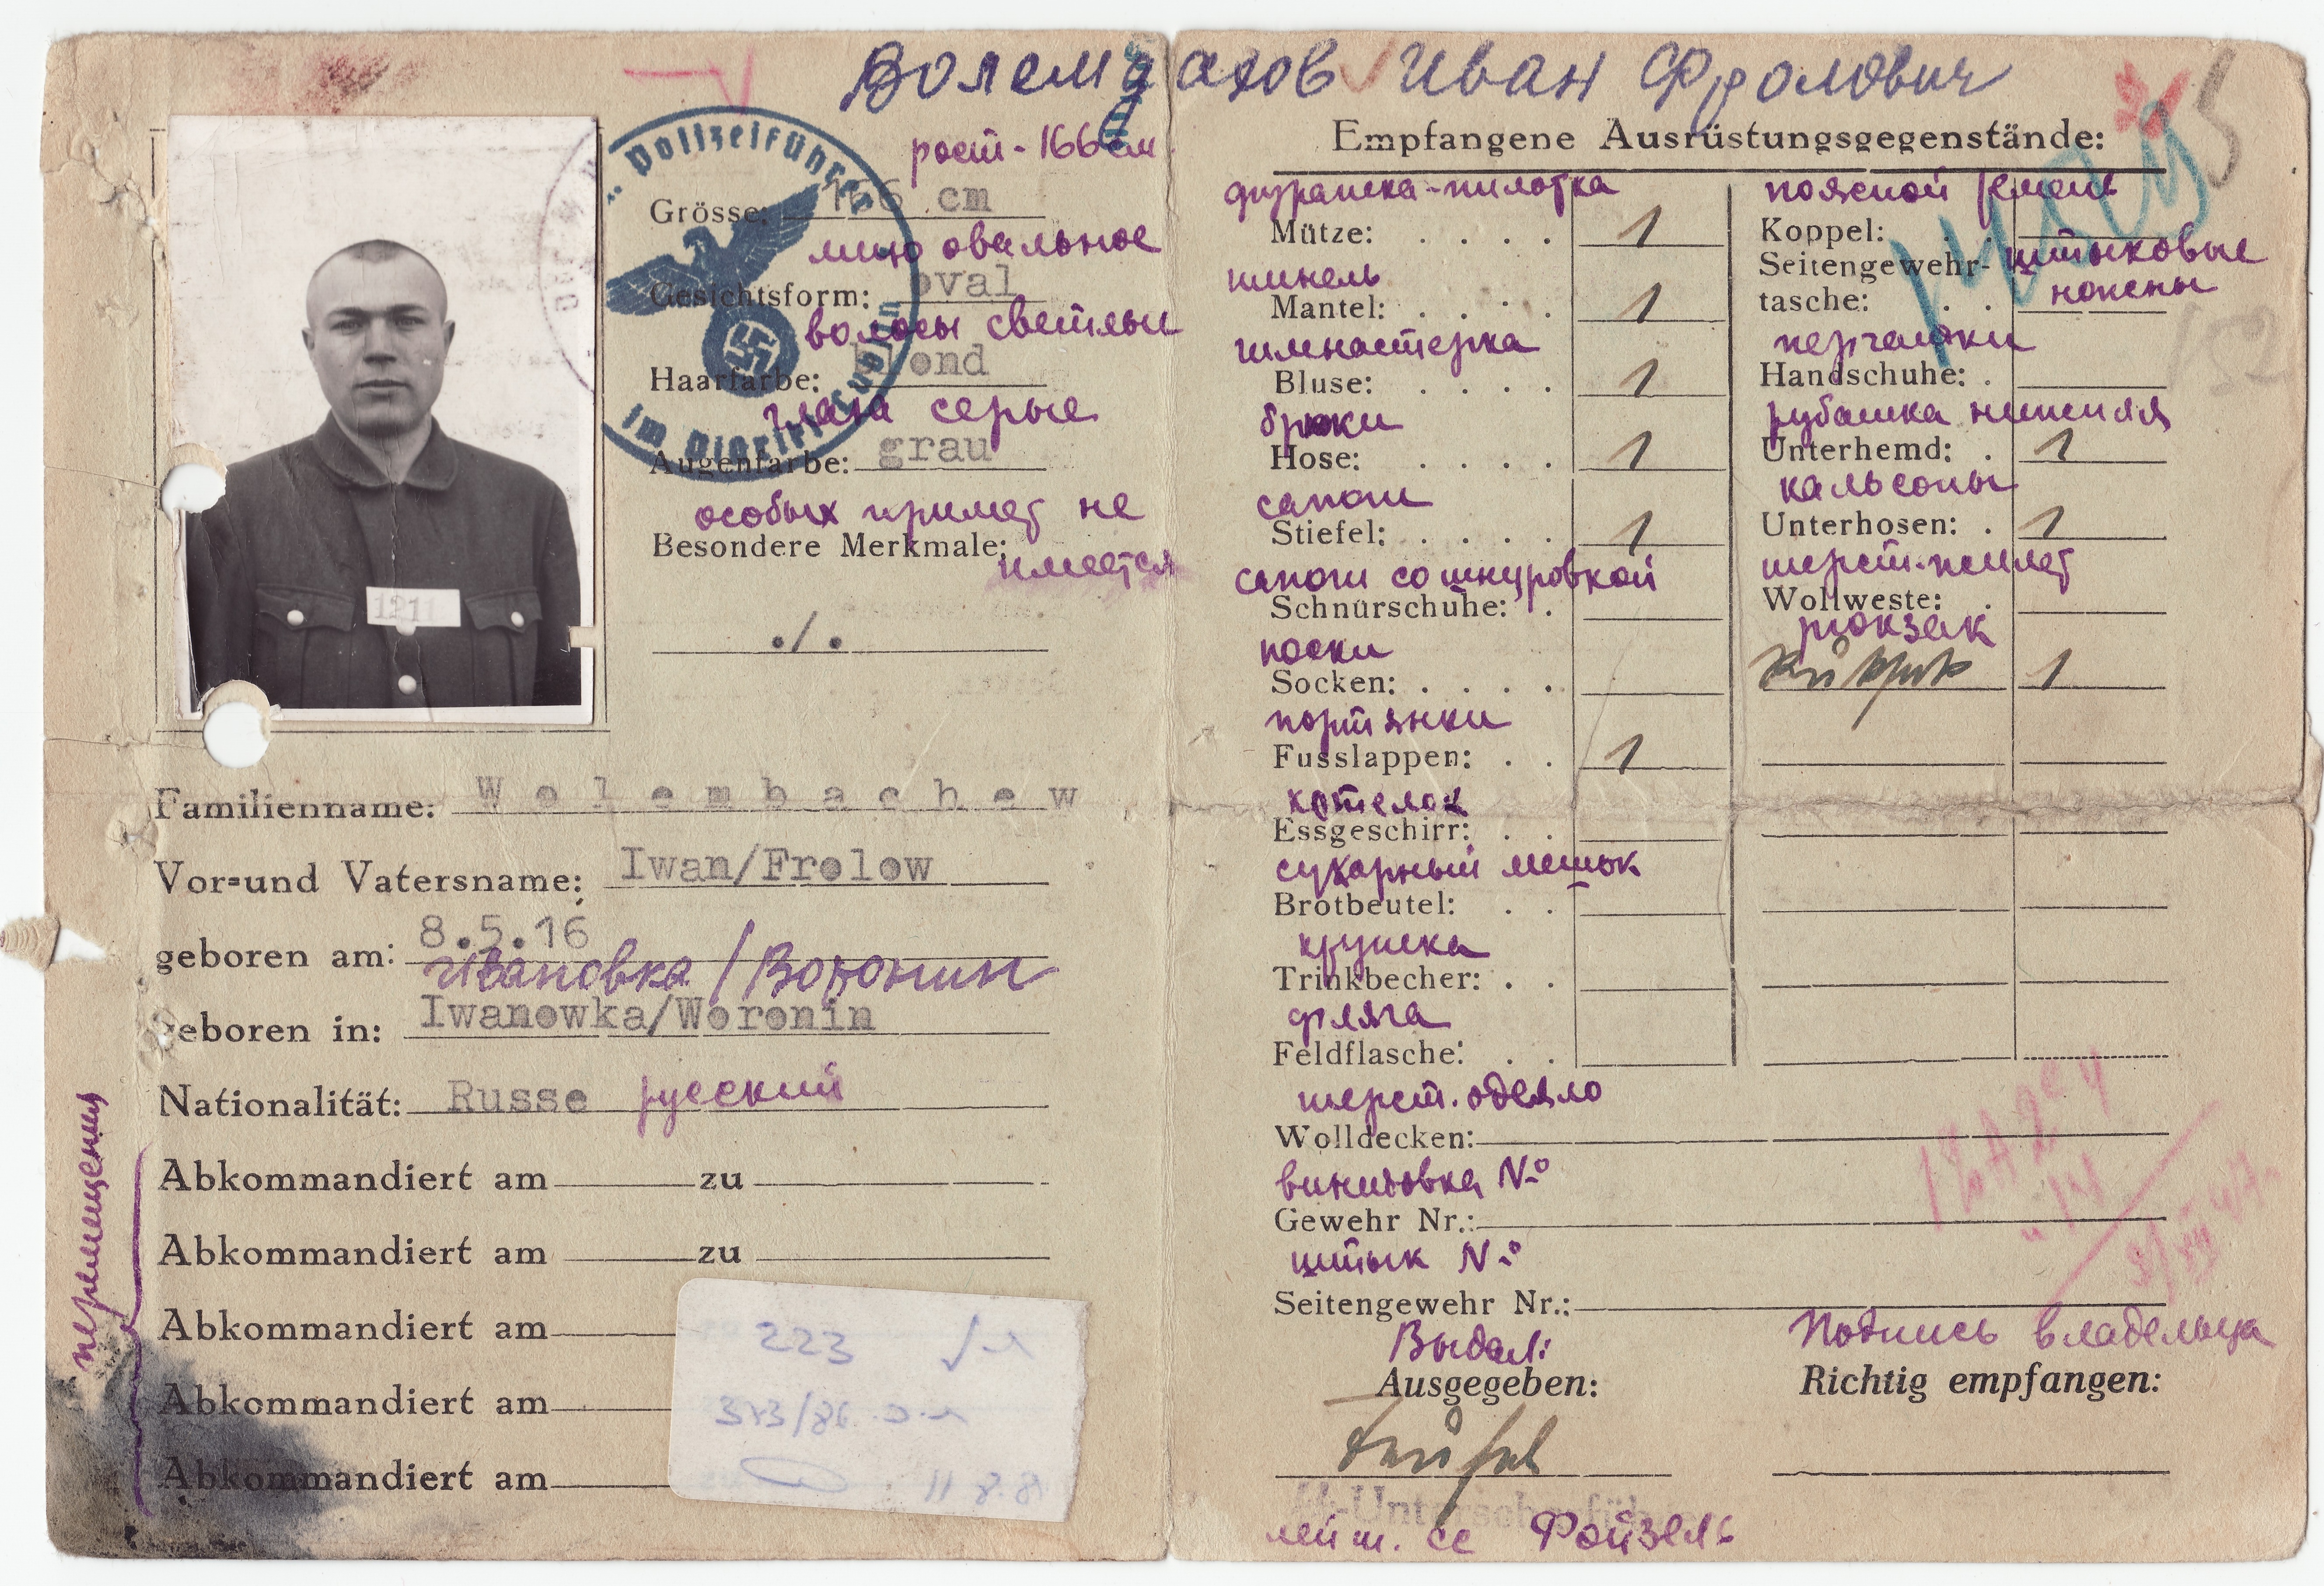 Иван Фролович
рост - 166 см
Grösse: 166 cm
лицо овальное
Gesichtsform: oval
волосы светлые
Haarfarbe: blond
глаза серые
Augenfarbe: grau
особых примет не
Besondere Merkmale:
имеется
./.
Polizeiführer
im Distrikt Lublin
1211
Familienname: Wolembachow
Vor=und Vatersname: Iwan/Frolow
geboren am: 8.5.16
Ивановка / Воронин
geboren in: Iwanowka/Woronin
Nationalität: Russe русский
перемещения
Abkommandiert am zu
Abkommandiert am zu
Abkommandiert am
Abkommandiert am
Abkommandiert am
223
11.8.8
Empfangene Ausrüstungsgegenstände:
фуражка-пилотка
Mütze: . . . . 1
шинель
Mantel: . . . . 1
гимнастерка
Bluse: . . . . 1
брюки
Hose: . . . . 1
сапоги
Stiefel: . . . . 1
сапоги со шнуровкой
Schnürschuhe: .
носки
Socken: . . . .
портянки
Fusslappen: . . 1
котелок
Essgeschirr: . .
сухарный мешок
Brotbeutel: . .
кружка
Trinkbecher: . .
фляга
Feldflasche: . .
поясной ремень
Koppel: . .
Seitengewehr-
tasche: . .
штыковые
ножны
перчатки
Handschuhe: .
рубашка нижняя
Unterhemd: . 1
кальсоны
Unterhosen: . 1
шерст. жилет
Wollweste: .
рюкзак
1
шерст. одеяло
Wolldecken:
винтовка №
Gewehr Nr.:
штык №
Seitengewehr Nr.:
Выдал:
Ausgegeben:
лейт. СС Фойзель
Подпись владельца
Richtig empfangen: